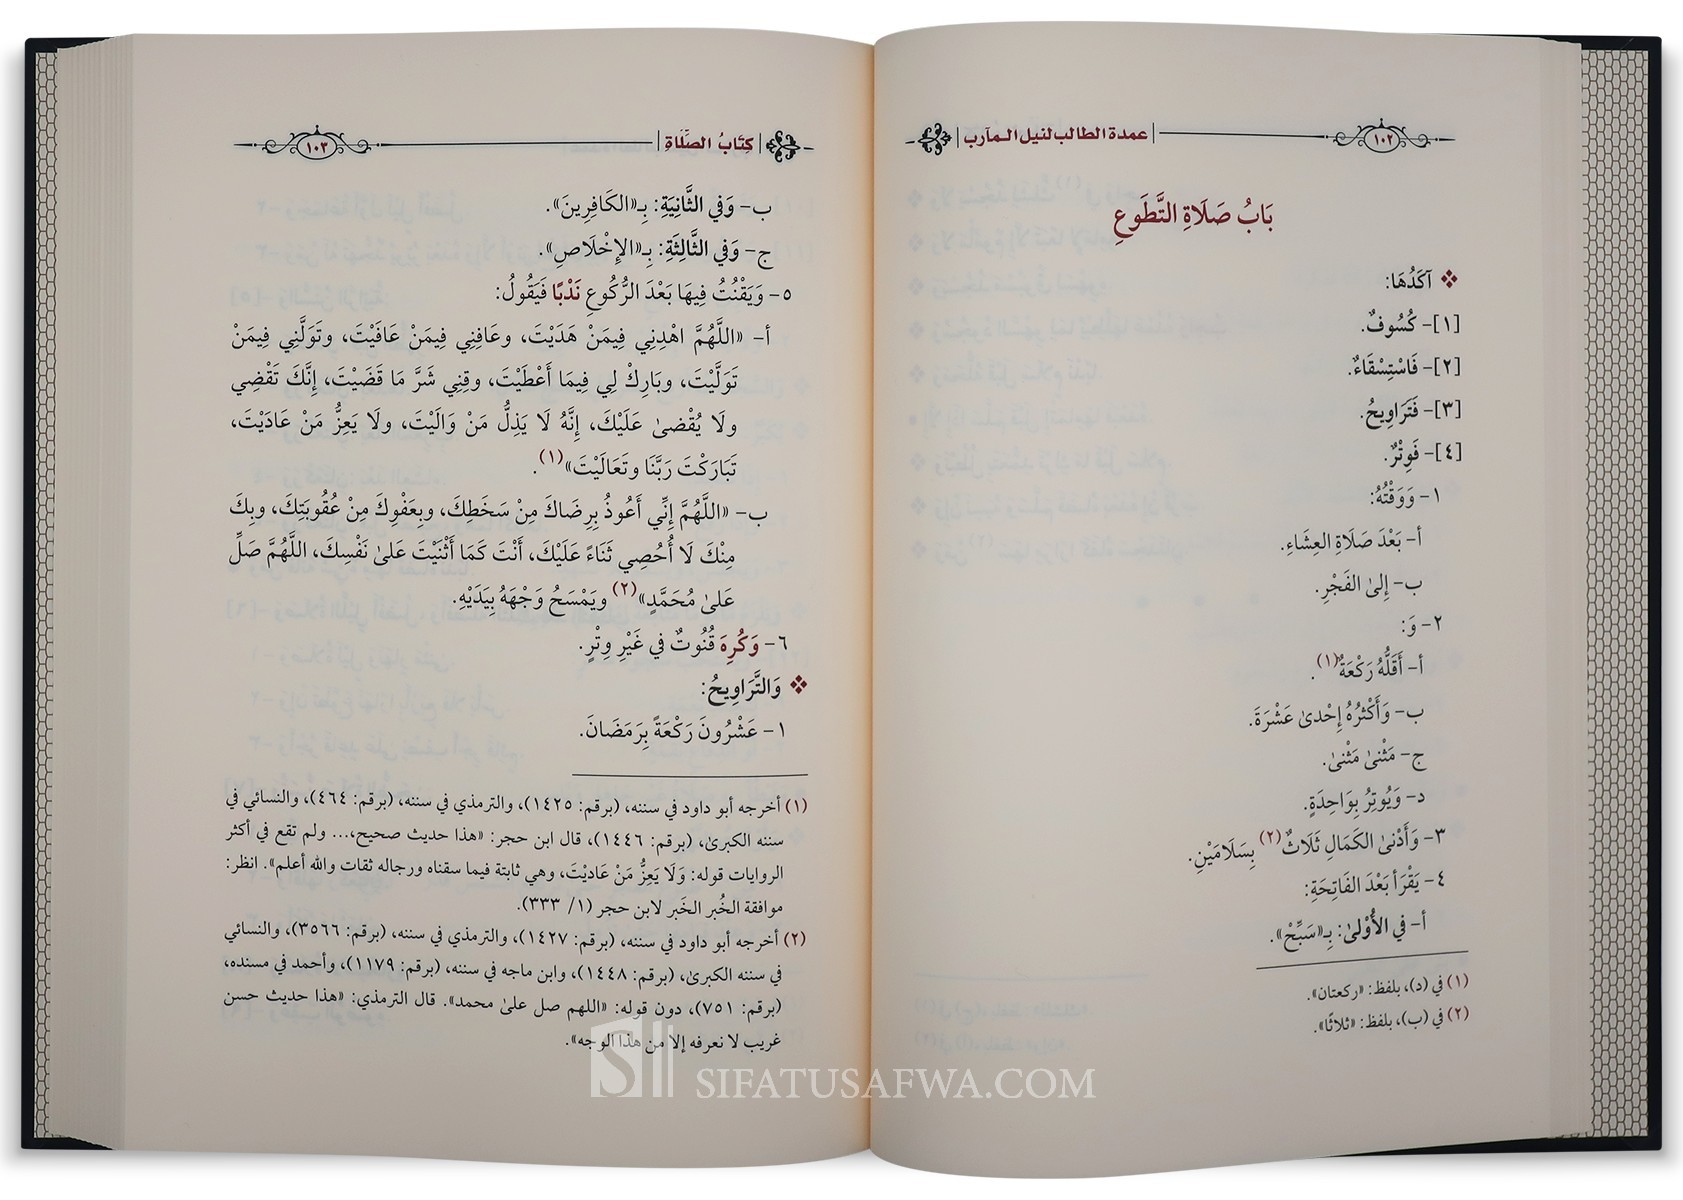 عمدة الطالب لنيل المآرب
١٠٢
بَابُ صَلَاةِ التَّطَوُعِ
آكَدُهَا:
[١]- كُسُوفٌ.
[٢]- فَاسْتِسْقَاءٌ.
[٣]- فَتَرَاوِيحُ.
[٤]- فَوِتْرٌ.
١- وَوَقْتُهُ:
أ- بَعْدَ صَلَاةِ العِشَاءِ.
ب- إِلىٰ الفَجْرِ.
٢- وَ:
أ- أَقَلُّهُ رَكْعَةٌ(١).
ب- وَأَكْثَرُهُ إِحْدىٰ عَشْرَةَ.
ج- مَثْنىٰ مَثْنىٰ.
د- وَيُوتِرُ بِوَاحِدَةٍ.
٣- وَأَدْنىٰ الكَمَالِ ثَلَاثٌ(٢) بِسَلَامَيْنِ.
٤- يَقْرَأ بَعْدَ الفَاتِحَةِ:
أ- في الأُوْلىٰ: بِـ«سَبِّحْ».
(١) في (د)، بلفظ: «ركعتان».
(٢) في (ب)، بلفظ: «ثلاثًا».
كِتَابُ الصَّلَاةِ
١٠٣
ب- وَفي الثَّانِيَةِ: بِـ«الكَافِرِينَ».
ج- وَفي الثَّالِثَةِ: بِـ«الإِخْلَاصِ».
٥- وَيَقْنُتُ فِيهَا بَعْدَ الرُّكُوعِ نَدْبًا فَيَقُولُ:
أ- «اللَّهُمَّ اهْدِنِي فِيمَنْ هَدَيْتَ، وعَافِنِي فِيمَنْ عَافَيْتَ، وتَوَلَّنِي فِيمَنْ
تَوَلَّيْتَ، وبَارِكْ لِي فِيمَا أَعْطَيْتَ، وقِنِي شَرَّ مَا قَضَيْتَ، إِنَّكَ تَقْضِي
ولَا يُقْضىٰ عَلَيْكَ، إِنَّهُ لَا يَذِلُّ مَنْ وَالَيْتَ، ولَا يَعِزُّ مَنْ عَادَيْتَ،
تَبَارَكْتَ رَبَّنَا وتَعَالَيْتَ»(١).
ب- «اللَّهُمَّ إِنِّي أَعُوذُ بِرِضَاكَ مِنْ سَخَطِكَ، وبِعَفْوِكَ مِنْ عُقُوبَتِكَ، وبِكَ
مِنْكَ لَا أُحْصِي ثَنَاءً عَلَيْكَ، أَنْتَ كَمَا أَثْنَيْتَ عَلىٰ نَفْسِكَ، اللَّهُمَّ صَلِّ
عَلىٰ مُحَمَّدٍ»(٢) ويَمْسَحُ وَجْهَهُ بِيَدَيْهِ.
٦- وَكُرِهَ قُنُوتٌ في غَيْرِ وِتْرٍ.
وَالتَّرَاوِيحُ:
١- عَشْرُونَ رَكْعَةً بِرَمَضَانَ.
(١) أخرجه أبو داود في سننه، (برقم: ١٤٢٥)، والترمذي في سننه، (برقم: ٤٦٤)، والنسائي في
سننه الكبرىٰ، (برقم: ١٤٤٦)، قال ابن حجر: «هذا حديث صحيح،... ولم تقع في أكثر
الروايات قوله: وَلَا يَعِزُّ مَنْ عَاديْتَ، وهي ثابتة فيما سقناه ورجاله ثقات والله أعلم». انظر:
موافقة الخُبر الخَبر لابن حجر (١/ ٣٣٣).
(٢) أخرجه أبو داود في سننه، (برقم: ١٤٢٧)، والترمذي في سننه، (برقم: ٣٥٦٦)، والنسائي
في سننه الكبرىٰ، (برقم: ١٤٤٨)، وابن ماجه في سننه، (برقم: ١١٧٩)، وأحمد في مسنده،
(برقم: ٧٥١)، دون قوله: «اللهم صل علىٰ محمد». قال الترمذي: «هذا حديث حسن
غريب لا نعرفه إلا من هذا الوجه».
SIFATUSAFWA.COM